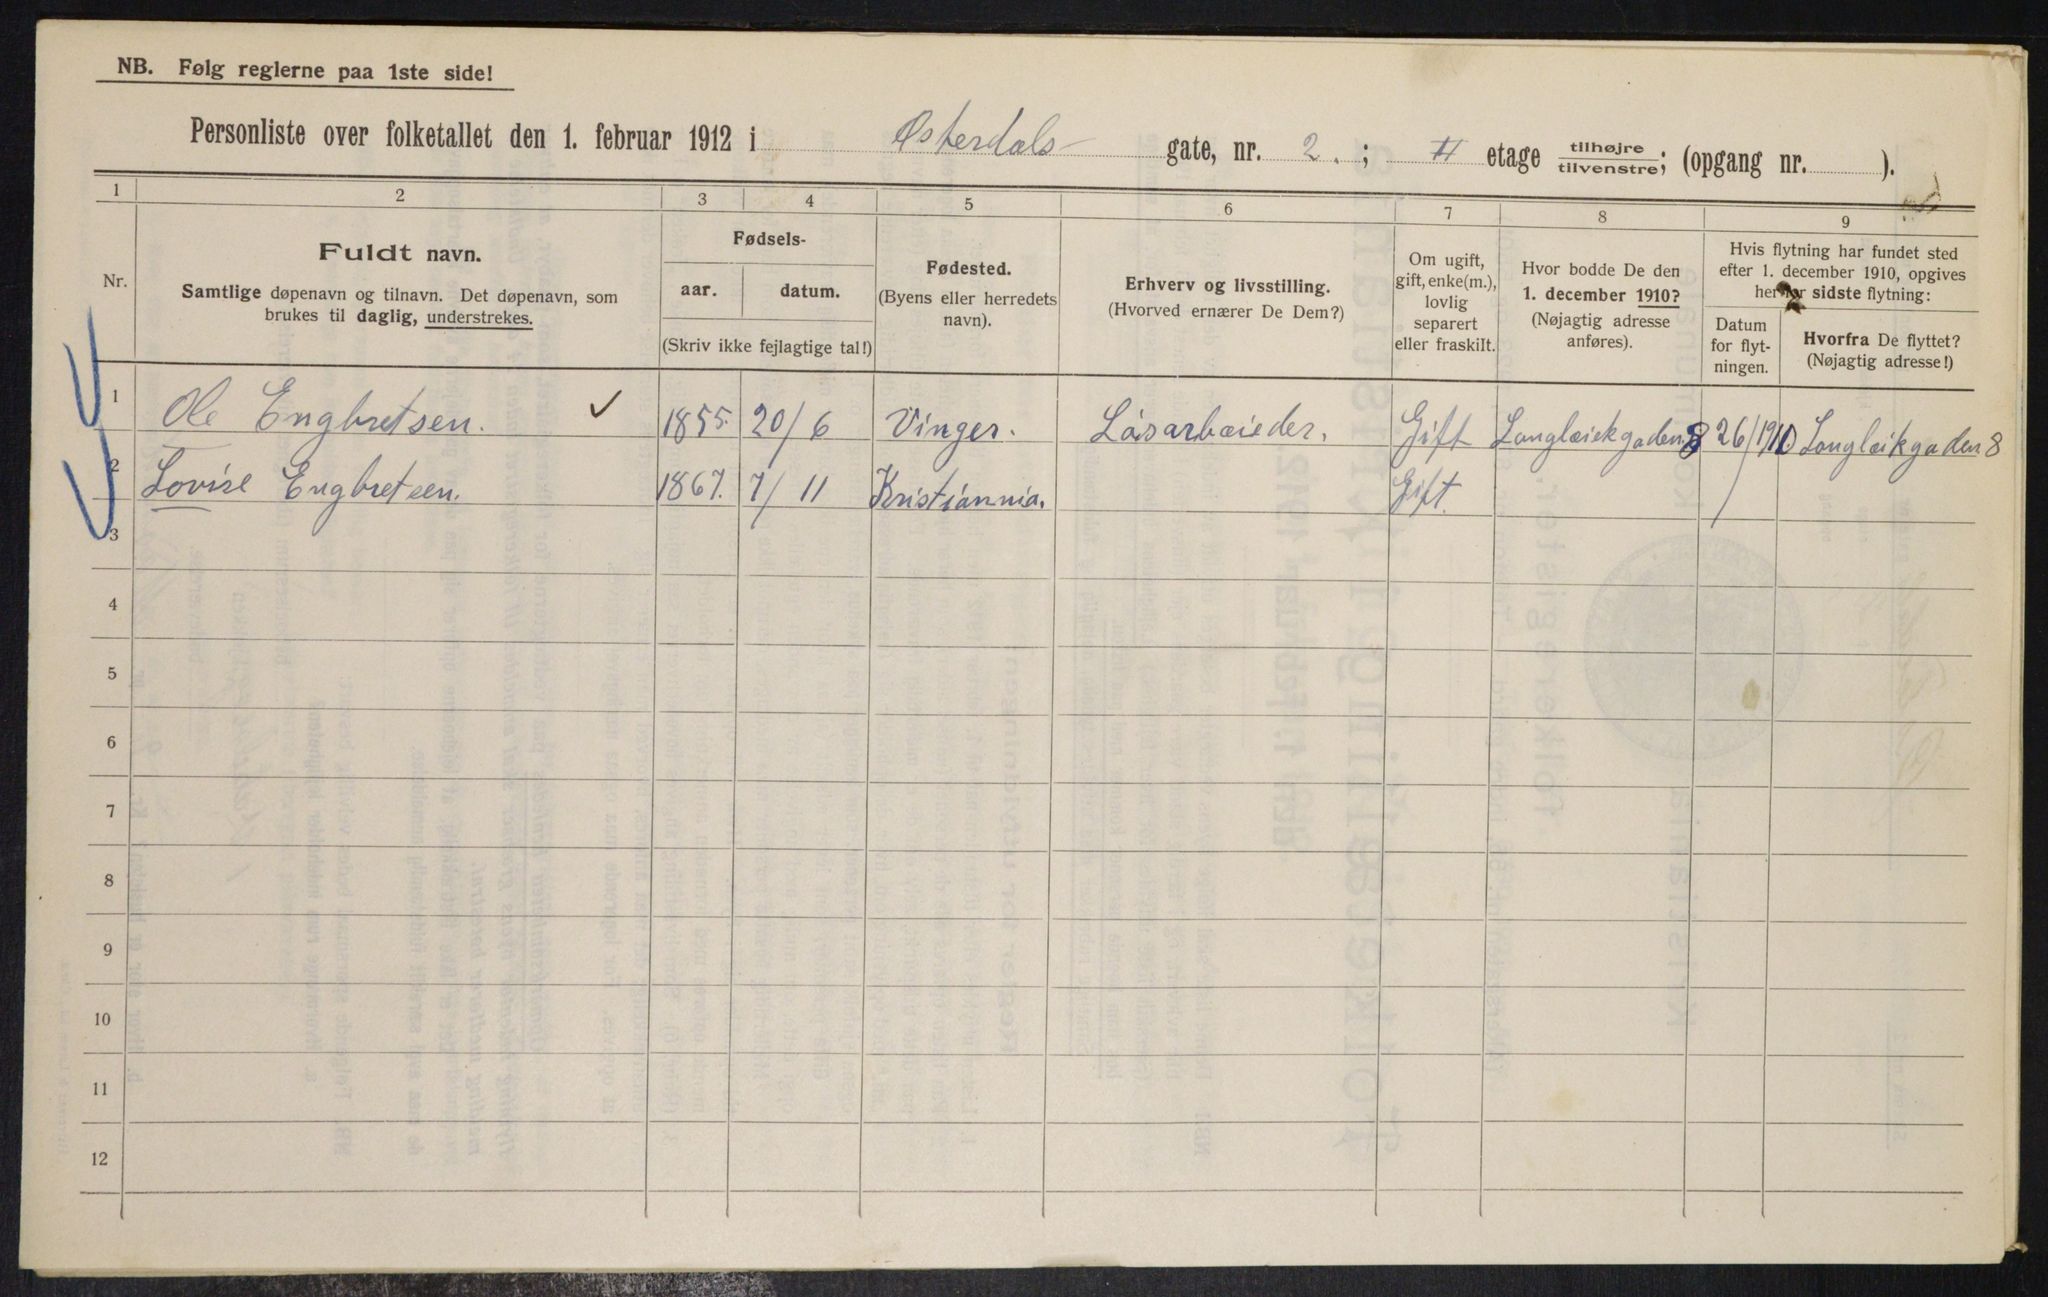 NB. Følg reglerne paa 1ste side!
Personliste over folketallet den 1. februar 1912 i Østerdals gate, nr. 2. ; II etage tilhøjre/tilvenstre; (opgang nr. ).
1 2 3 4 5 6 7 8 9
Nr.
Fuldt navn.
Samtlige døpenavn og tilnavn. Det døpenavn, som
brukes til daglig, understrekes.
Fødsels-
aar. datum.
(Skriv ikke fejlagtige tal!)
Fødested.
(Byens eller herredets
navn).
Erhverv og livsstilling.
(Hvorved ernærer De Dem?)
Om ugift,
gift, enke(m.),
lovlig
separert
eller fraskilt.
Hvor bodde De den
1. december 1910?
(Nøjagtig adresse
anføres).
Hvis flytning har fundet sted
efter 1. december 1910, opgives
her for sidste flytning:
Datum
for flyt-
ningen.
Hvorfra De flyttet?
(Nøjagtig adresse!)
1 Ole Engbretsen. ✓ 1855. 20/6 Vinger. Løsarbæider. Gift Langlæikgaden 8 26/1911 Langlæikgaden 8
2 Lovise Engbretsen. 1867. 7/11 Kristiannia. Gift.
3
4
5
6
7
8
9
10
11
12